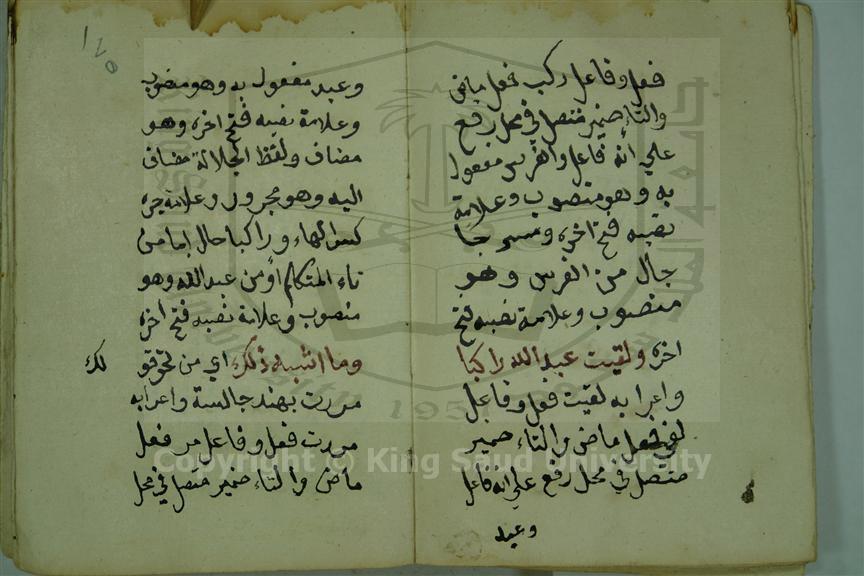 فعل وفاعل ركب فعل ماض
والتاء ضمير متصل في محل رفع
علي انه فاعل والفرس مفعول
به وهو منصوب وعلامة
نصبه فتح اخره ومسرجا
حال من الفرس وهو
منصوب وعلامة نصبه فتح
اخره ولقيت عبد الله راكبا
واعرابه لقيت فعل وفاعل
لقي فعل ماض والتاء ضمير
متصل في محل رفع علي انه فاعل
وعبد
١٢٥
وعبد مفعول به وهو منصوب
وعلامة نصبه فتح اخره وهو
مضاف ولفظ الجلالة مضاف
اليه وهو مجرور وعلامة جره
كسر الهاء وراكبا حال اما من
تاء المتكلم أو من عبد الله وهو
منصوب وعلامة نصبه فتح اخره
وما اشبه ذلك اي من نحو قو
لك
مررت بهند جالسة واعرابه
مررت فعل وفاعل مر فعل
ماض والتاء ضمير متصل في محل
Copyright © King Saud University